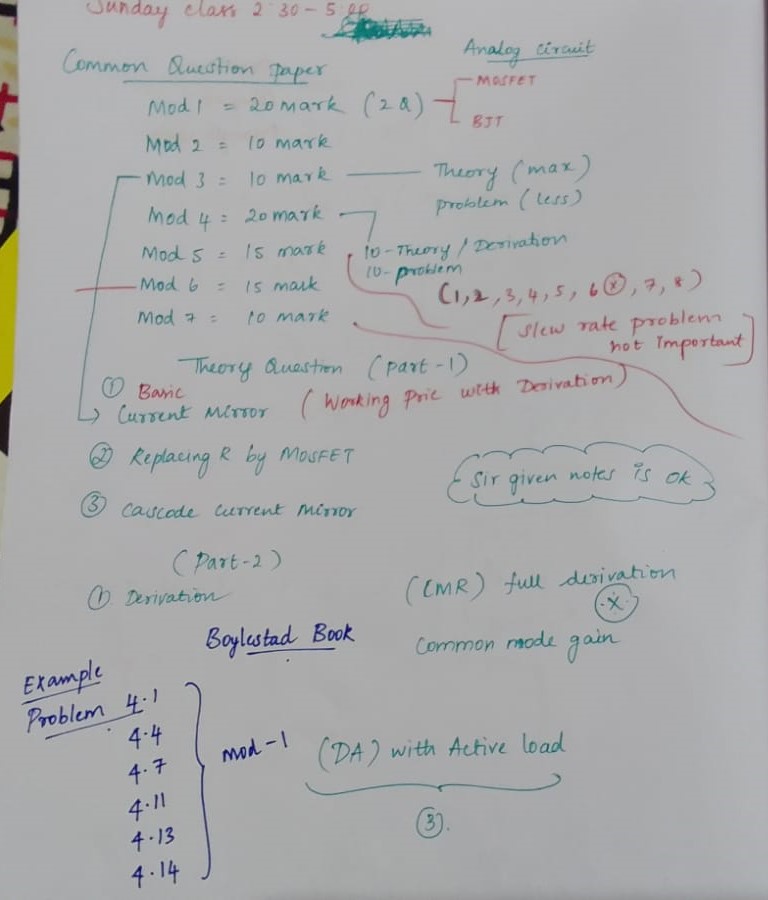 Sunday class 2:30 - 5:00
Analog circuit
Common Question paper
Mod 1 = 20 mark (2Q)
MOSFET
BJT
Mod 2 = 10 mark
Mod 3 = 10 mark
Theory (max)
problem (less)
Mod 4 = 20 mark
10 - Theory / Derivation
10 - problem
Mod 5 = 15 mark
Mod 6 = 15 mark
(1,2, 3, 4, 5, 6 ⓧ, 7, 8)
Mod 7 = 10 mark
[Slew rate problem
not Important]
Theory Question (part -1)
① Basic
Current Mirror (Working Pric with Derivation)
② Replacing R by MOSFET
Sir given notes is ok
③ Cascode current Mirror
(Part-2)
① Derivation
(CMR) full derivation
Common mode gain
Boylestad Book
Example
Problem 4.1
4.4
4.7
4.11
4.13
4.14
mod-1
(DA) with Active load
③.